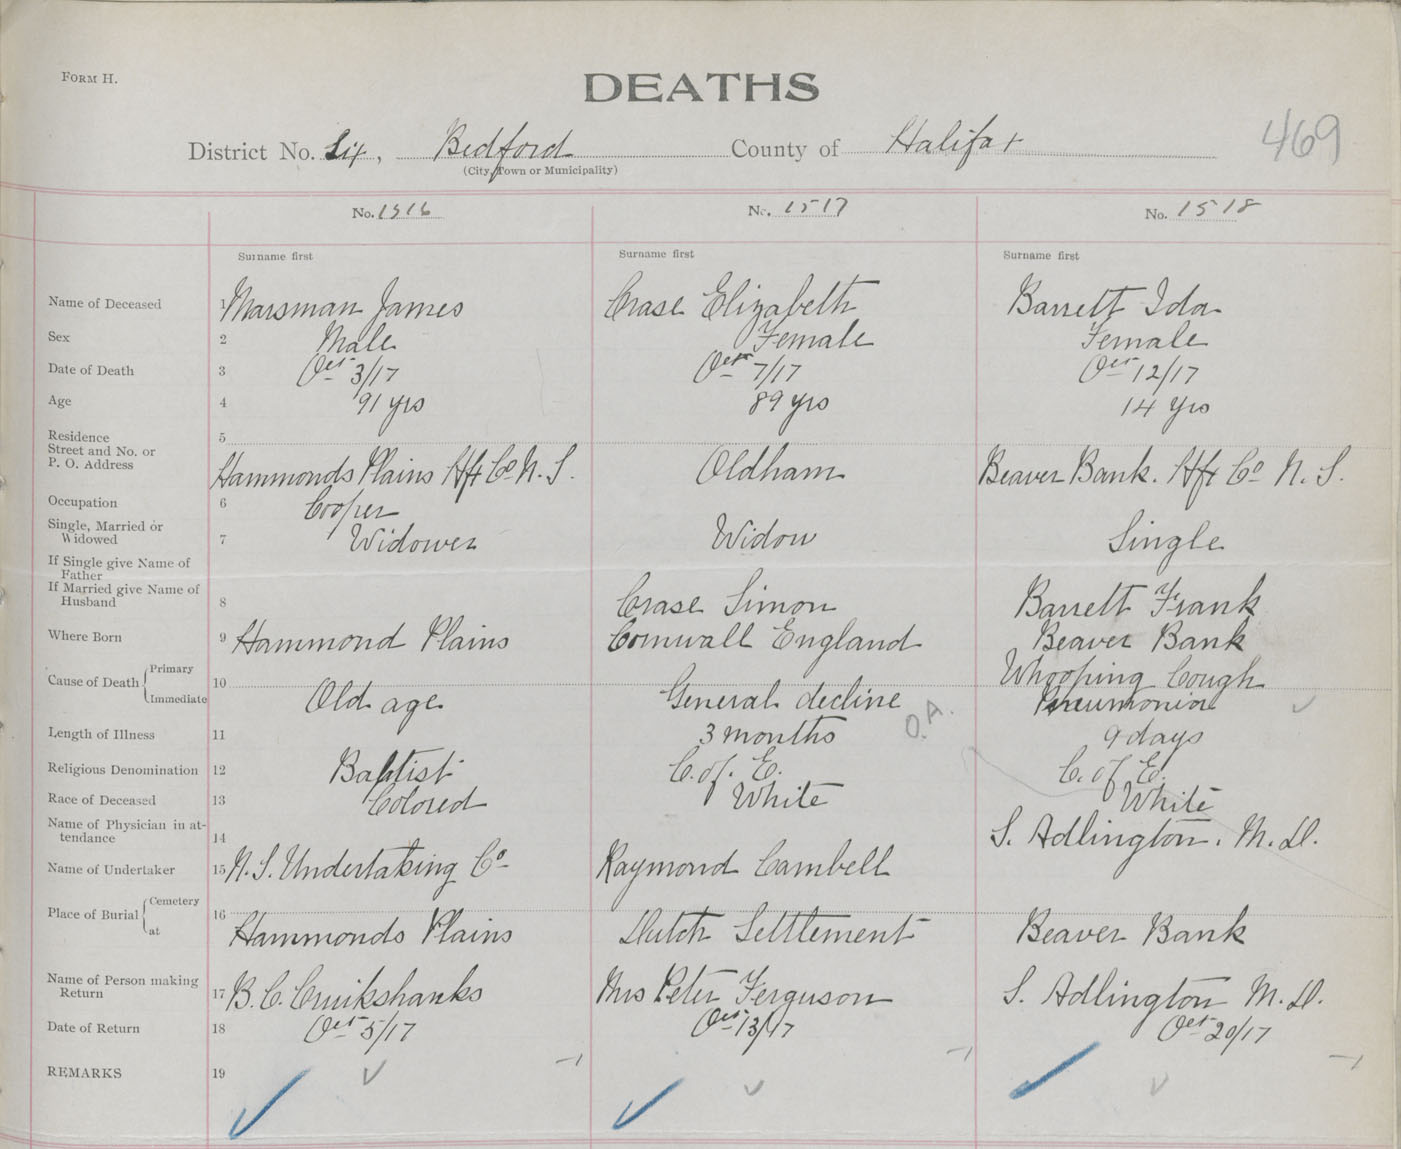 FORM H.
DEATHS
469
District No. Six, Bedford County of Halifax
(City, Town or Municipality)
No. 1516 No. 1517 No. 1518
Surname first Surname first Surname first
Name of Deceased 1 Marsman James Crase Elizabeth Barrett Ida
Sex 2 Male Female Female
Date of Death 3 Oct 3/17 Oct 7/17 Oct 12/17
Age 4 91 yrs 89 yrs 14 yrs
Residence 5
Street and No. or
P. O. Address Hammonds Plains Hfx Co N. S. Oldham Beaver Bank. Hfx Co N. S.
Occupation 6 Cooper
Single, Married or
Widowed 7 Widower Widow Single
If Single give Name of
Father
If Married give Name of
Husband 8 Crase Simon Barrett Frank
Where Born 9 Hammond Plains Cornwall England Beaver Bank
Cause of Death Primary 10 Whooping Cough
Immediate Old age General decline Pneumonia
O.A.
Length of Illness 11 3 months 9 days
Religious Denomination 12 Baptist C. of. E. C. of E.
Race of Deceased 13 Colored White White
Name of Physician in at-
tendance 14 S. Adlington. M. D.
Name of Undertaker 15 N. S. Undertaking Co Raymond Cambell
Place of Burial Cemetery 16
at Hammonds Plains Dutch Settlement Beaver Bank
Name of Person making
Return 17 B. C. Cruikshanks Mrs Peter Ferguson S. Adlington M. D.
Date of Return 18 Oct 5/17 Oct 13/17 Oct 20/17
REMARKS 19